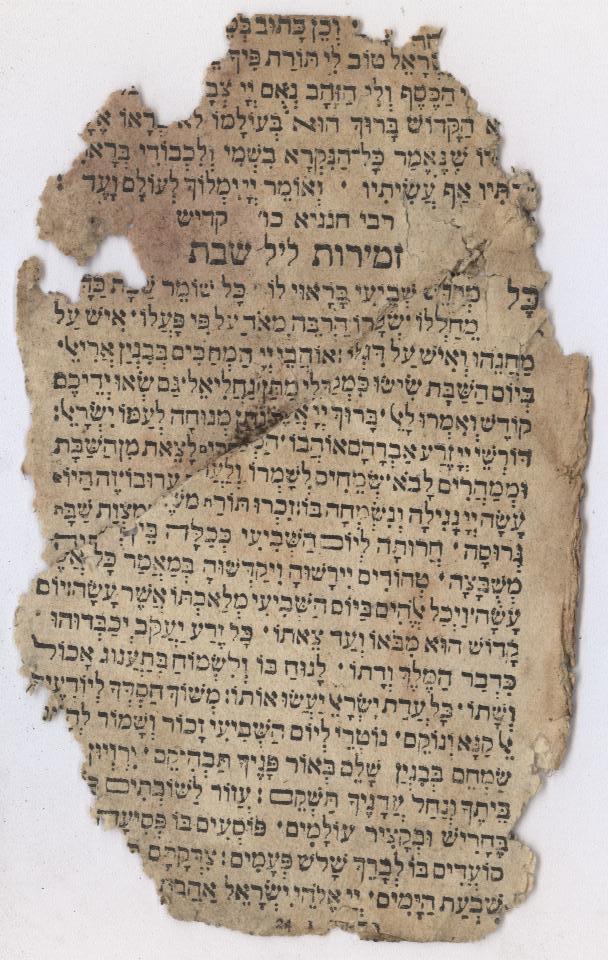 וְכֵן כָּתוּב
טוֹב לִי תּוֹרַת פִּיךָ
הַכֶּסֶף וְלִי הַזָּהָב נְאֻם יְיָ
הַקָּדוֹשׁ בָּרוּךְ הוּא בְּעוֹלָמוֹ לֹא
שֶׁנֶּאֱמַר כָּל־הַנִּקְרָא בִשְׁמִי וְלִכְבוֹדִי
אַף עֲשִׂיתִיו · וְאוֹמֵר יְיָ יִמְלוֹךְ לְעוֹלָם וָעֶד
רבי חנניא כו׳ קדיש
זמירות ליל שבת
כָּל מְקַדֵּשׁ שְׁבִיעִי כָּרָאוּי לוֹ · כָּל שׁוֹמֵר שַׁבָּת
מֵחַלְּלוֹ שְׂכָרוֹ הַרְבֵּה מְאֹד עַל פִּי פָעֳלוֹ · אִישׁ עַל
מַחֲנֵהוּ וְאִישׁ עַל דִּגְלוֹ : אוֹהֲבֵי יְיָ הַמְחַכִּים בְּבִנְיַן אֲרִיאֵל ·
בְּיוֹם הַשַּׁבָּת שִׂישׂוּ גַּם שְׂאוּ יְדֵיכֶם
קוֹדֶשׁ וְאִמְרוּ לָאֵל · בָּרוּךְ יְיָ אֲשֶׁר מְנוּחָה לְעַמּוֹ יִשְׂרָאֵל :
דּוֹרְשֵׁי יְיָ זֶרַע אַבְרָהָם אוֹהֲבוֹ · לָצֵאת מִן הַשַּׁבָּת
וּמְמַהֲרִים לָבֹא · שְׂמֵחִים לְשָׁמְרוֹ עֵרוּבוֹ · זֶה הַיּוֹם
עָשָׂה יְיָ נָגִילָה וְנִשְׂמְחָה בוֹ : זִכְרוּ תּוֹרַת מֹשֶׁה מִצְוַת שַׁבָּת
גְּרוּסָה · חֲרוּתָה לַיּוֹם הַשְּׁבִיעִי כְּכַלָּה
מְשֻׁבָּצָה · טְהוֹרִים יִירָשׁוּהָ וִיקַדְּשׁוּהָ בְּמַאֲמַר כָּל
עָשָׂה · וַיְכַל אֱלֹהִים בַּיּוֹם הַשְּׁבִיעִי מְלַאכְתּוֹ אֲשֶׁר עָשָׂה : יוֹם
קָדוֹשׁ הוּא מִבֹּאוֹ וְעַד צֵאתוֹ · כָּל זֶרַע יַעֲקֹב יְכַבְּדוּהוּ ·
כִּדְבַר הַמֶּלֶךְ וְדָתוֹ · לָנוּחַ בּוֹ וְלִשְׂמוֹחַ בְּתַעֲנוּג אָכוֹל
וְשָׁתוֹ · כָּל עֲדַת יִשְׂרָאֵל יַעֲשׂוּ אוֹתוֹ : מְשׁוֹךְ חַסְדְּךָ לְיוֹדְעֶיךָ
אֵל קַנָּא וְנוֹקֵם · נוֹטְרֵי לַיּוֹם הַשְּׁבִיעִי זָכוֹר וְשָׁמוֹר
שַׂמְּחֵם בְּבִנְיַן שָׁלֵם בְּאוֹר פָּנֶיךָ תַּבְהִיקֵם · יִרְוְיוּן
בֵּיתֶךָ וְנַחַל עֲדָנֶיךָ תַשְׁקֵם : עֲזוֹר לַשּׁוֹבְתִים
בֶּחָרִישׁ וּבַקָּצִיר עוֹלָמִים · פּוֹסְעִים בּוֹ פְּסִיעָה
סוֹעֲדִים בּוֹ לְבָרֵךְ שָׁלֹשׁ פְּעָמִים : צִדְקָתָם
שִׁבְעַת הַיָּמִים · יְיָ אֱלֹהֵי יִשְׂרָאֵל אַהֲבַת
24